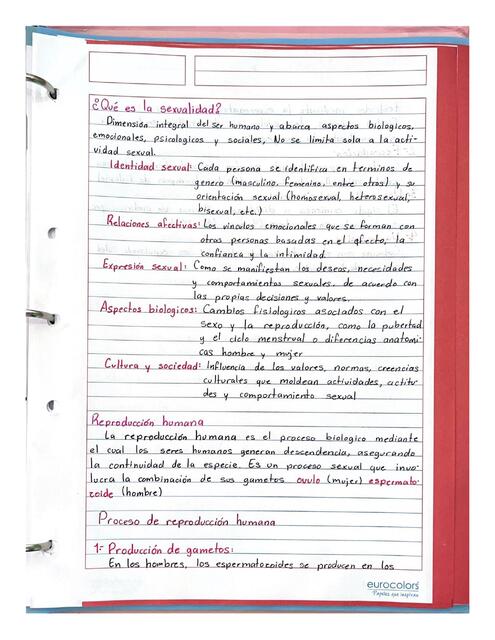 ¿Qué es la sexualidad?
Dimensión integral del ser humano y abarca aspectos biologicos,
emocionales, psicologicos y sociales, No se limita sola a la acti-
vidad sexual.
Identidad sexual: Cada persona se identifica en terminos de
genero (masculino, femenino, entre otros) y su
orientación sexual (homosexual, heterosexual,
bisexual, etc.)
Relaciones afectivas: Los vinculos emocionales que se forman con
otras personas basadas en el afecto, la
confianza y la intimidad.
Expresión sexual: Como se manifiestan los deseos, necesidades
y comportamientos sexuales, de acuerdo con
las propias decisiones y valores.
Aspectos biologicos: Cambios fisiologicos asociados con el
sexo y la reproducción, como la pubertad
y el ciclo menstrual o diferencias anatomi-
cas hombre y mujer
Cultura y sociedad: Influencia de los valores, normas, creencias
culturales que moldean actividades, actitu-
des y comportamiento sexual
Reproducción humana
La reproducción humana es el proceso biologico mediante
el cual los seres humanos generan descendencia, asegurando
la continuidad de la especie. Es un proceso sexual que invo-
lucra la combinación de sus gametos ovulo (mujer) espermato-
zoide (hombre)
Proceso de reproducción humana
1.- Producción de gametos:
En los hombres, los espermatozoides se producen en los
eurocolors
Papeles que inspiran